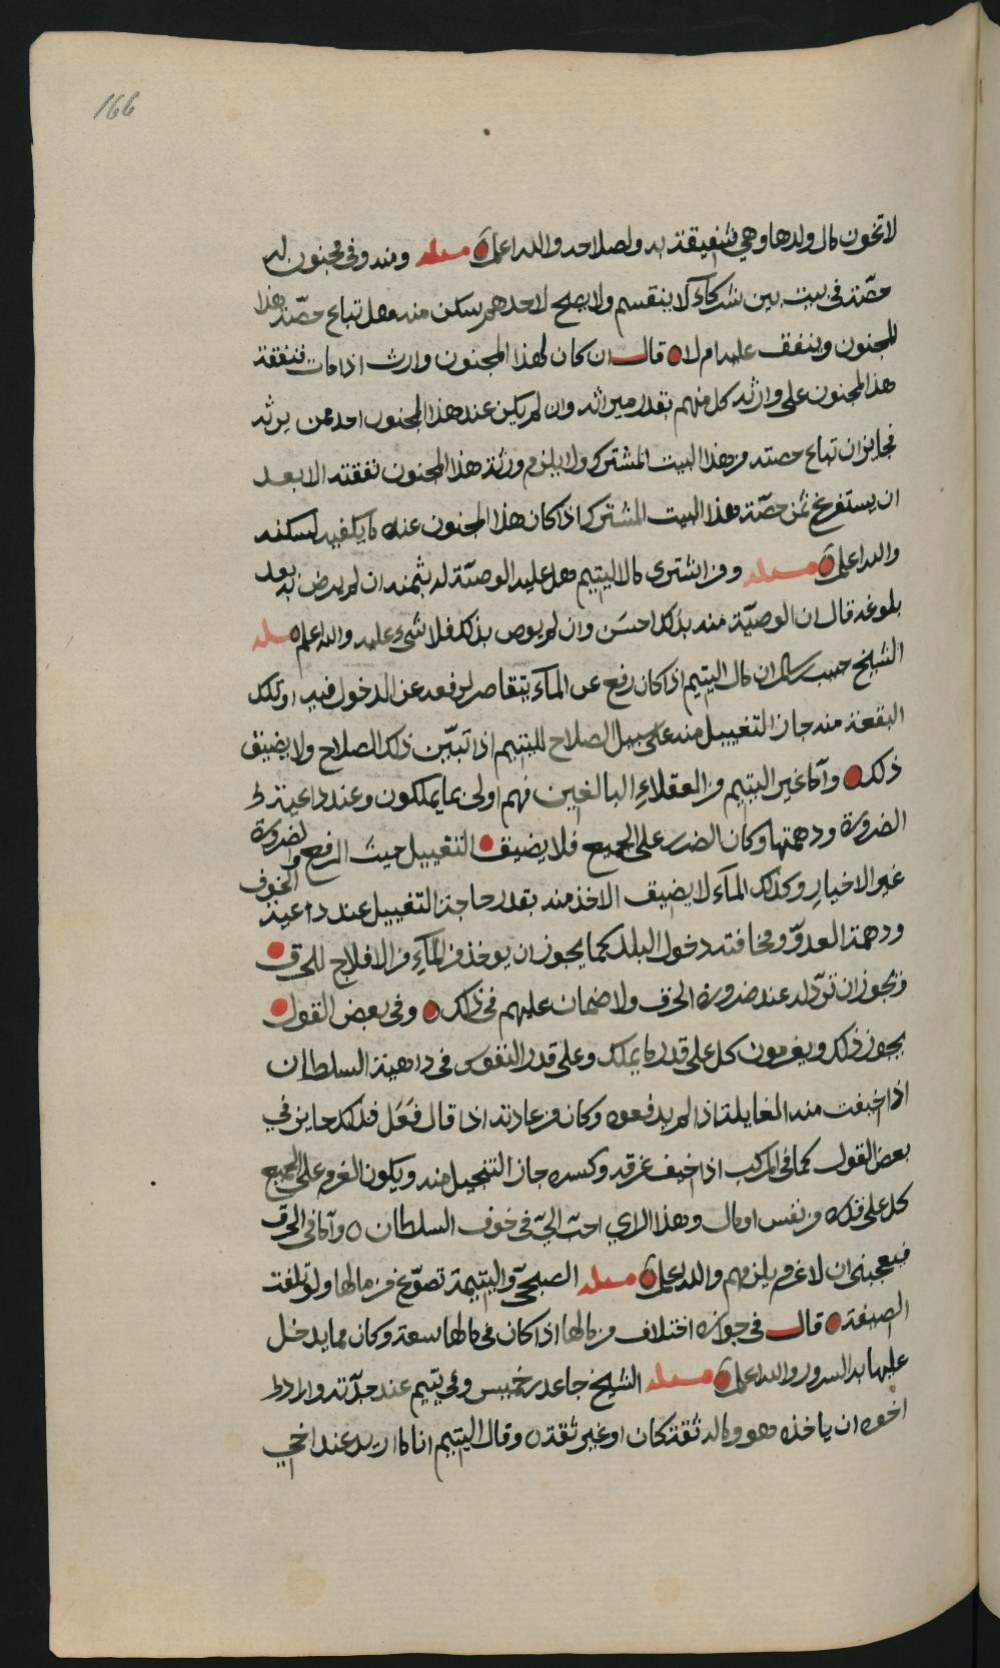 166
لا تخون مال ولدها وهي شفيقة به ولصلاحه والله اعلم مسئله ومنه وفي مجنون له
حصّة في بيت بين شركآء لا ينقسم ولا يصلح لاحدهم يسكن منه هل تباع حصّة هذا
المجنون وينفق عليه ام لا قال ان كان لهذا المجنون وارث اذا مات فنفقة
هذا المجنون على وارثه كل منهم بقدر ميراثه وان لم يكن عند هذا المجنون احد ممن يرثه
فجايز ان تباع حصته من هذا البيت المشترك ولا يلزم ورثة هذا المجنون نفقته الا بعد
ان يستفرغ ثمن حصّة هذا البيت المشترك اذا كان هذا المجنون عنده ما يكفيه لسكنه
والله اعلم مسئله ومن اشترى مالا ليتيم هل عليه الوصيّة له بثمنه ان لم يرض به بعد
بلوغه قال ان الوصيّة منه بذلك احسن وان لم يوص بذلك فلا شيء عليه والله اعلم مسئله
الشيخ حبيب بن سالم ان مال اليتيم اذا كان رفع عن المآء يتقاصر لرفعه عن الدخول فيه او تلك
البقعة منه جاز التغييل منه على سبيل الصلاح لليتيم اذا تبيّن ذلك الصلاح ولا يضيق
ذلك وآما غير اليتيم من العقلاءِ البالغين فهم اولى بما يملكون وعند داعية
الضرورة ودهمتها وكان الضرر على الجميع فلا يضيق التغييل حيث الرفع والضرورة
غير الاخيارِ وكذلك المآء لا يضيق الاخذ منه بقدر حاجة التغييل عند داعية الخوف
ودهمة العدوّ ومخافته دخول البلد كما يجوز ان يوخذ من المآءِ من الافلاج للحرق
ويجوز ان تورّد له عند ضرورة الحرق ولا ضمان عليهم في ذلك وفي بعض القول
يجوز ذلك ويغرمون كل على قدر ما يملك وعلى قدر النفوس في داهية السلطان
اذا خيفت منه الغايلة اذا لم يدفعوه وكان من عادته اذا قال فَعَل فذلك جايز في
بعض القول كما في المركب اذا خيف غرقه وكسره جاز التنجيل منه ويكون الغرم على الجميع
كل على قدره من نفس او مال وهذا الراي احبّ اليّ في خوف السلطان وآما في الحرق
فيعجبني ان لا غرم يلزمهم والله اعلم مسئله الصبيّ واليتيمة تصوّغ من مالها ولو تلفت
الصيغة قال في جوازه اختلاف من مالها اذا كان في مالها سعة وكان مما يدخل
عليها به السرور والله اعلم مسئله الشيخ جاعد بن خميس وفي يتيم عند جدّته واراد
اخوه ان ياخذه هو وماله ثقة كان او غير ثقة وقال اليتيم انا ما اريد عند اخي